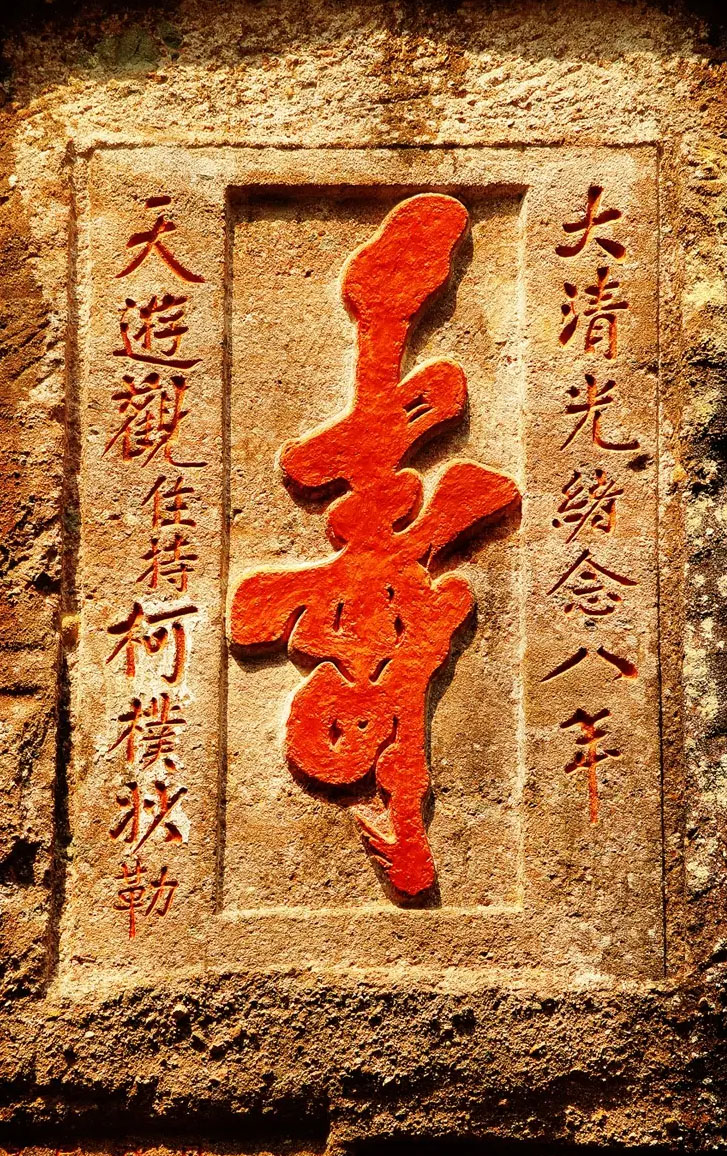 大清光緒念八年
壽
天遊觀住持柯樸狄勒